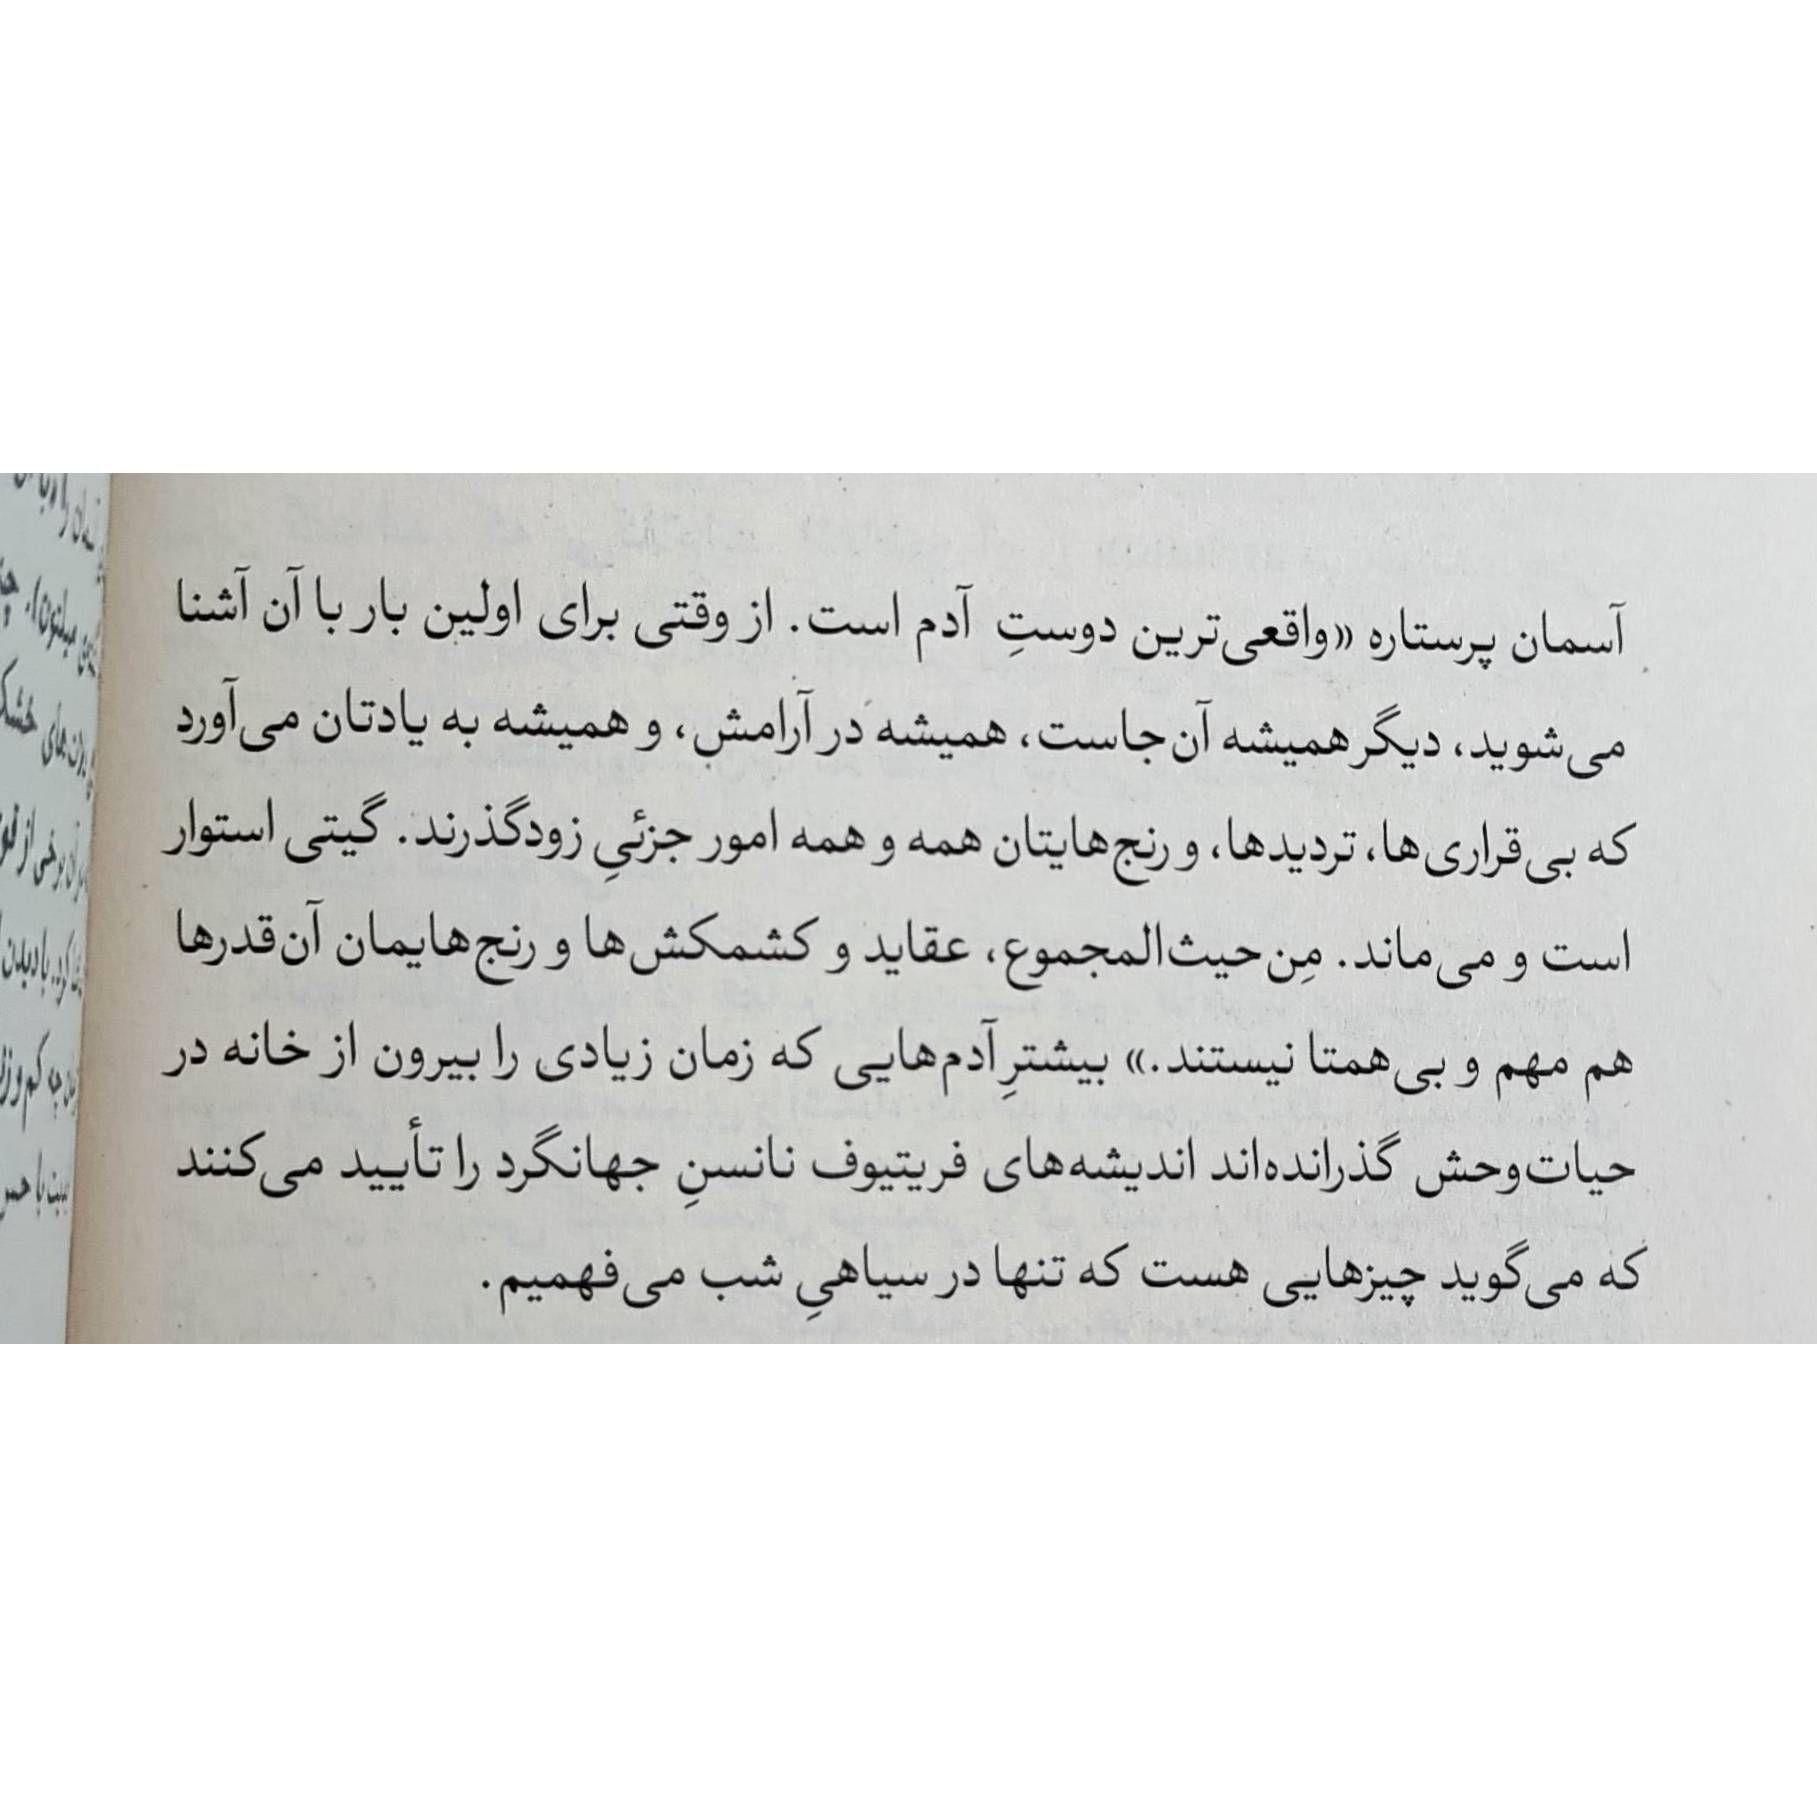 آسمان پرستاره «واقعی‌ترین دوستِ آدم است. از وقتی برای اولین بار با آن آشنا
می‌شوید، دیگر همیشه آن‌جاست، همیشه در آرامش، و همیشه به یادتان می‌آورد
که بی‌قراری‌ها، تردیدها، و رنج‌هایتان همه و همه امور جزئیِ زودگذرند. گیتی استوار
است و می‌ماند. مِن‌حیث‌المجموع، عقاید و کشمکش‌ها و رنج‌هایمان آن‌قدرها
هم مهم و بی‌همتا نیستند.» بیشترِ آدم‌هایی که زمان زیادی را بیرون از خانه در
حیات‌وحش گذرانده‌اند اندیشه‌های فریتیوف نانسنِ جهانگرد را تأیید می‌کنند
که می‌گوید چیزهایی هست که تنها در سیاهیِ شب می‌فهمیم.